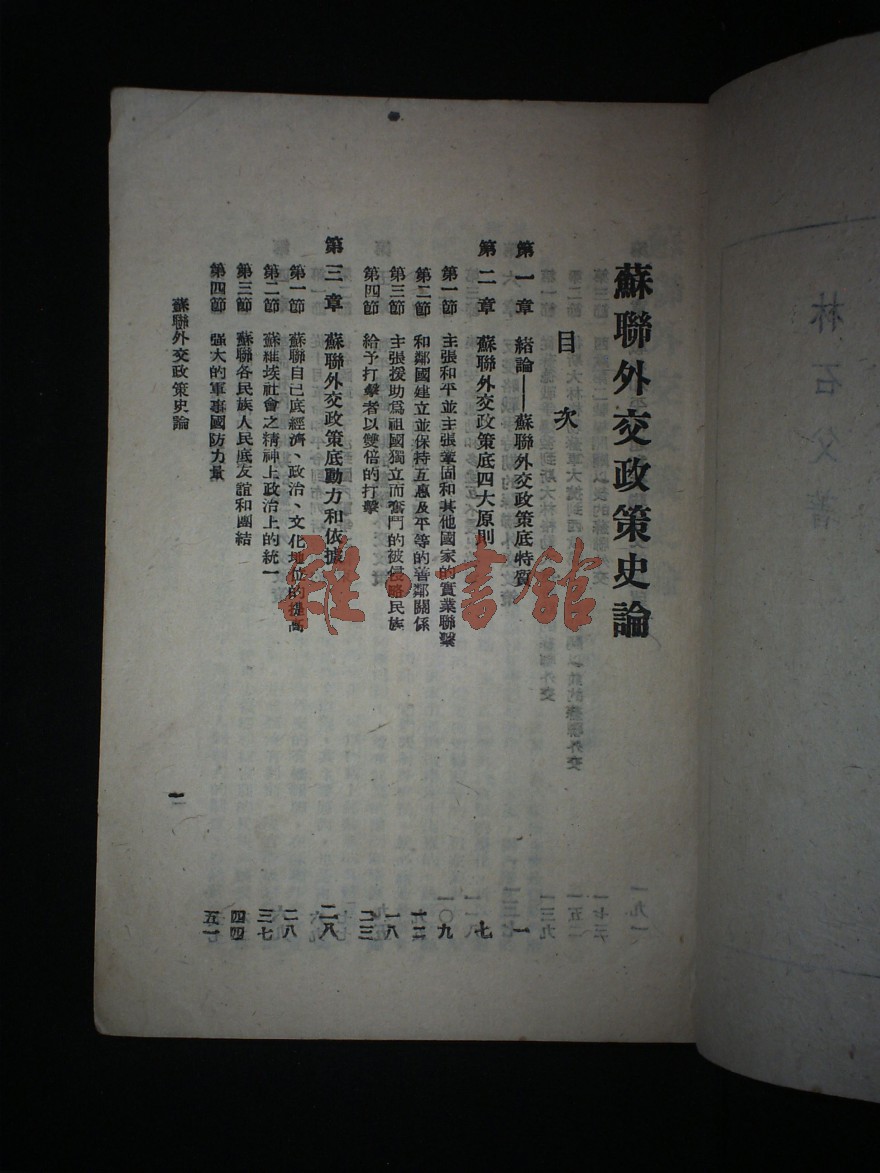 蘇聯外交政策史論
目次
第一章 緒論——蘇聯外交政策底特質 一
第二章 蘇聯外交政策底四大原則 七
第一節 主張和平並主張鞏固和其他國家的實業聯繫 九
第二節 和鄰國建立並保持互惠及平等的善鄰關係 一二
第三節 主張援助爲祖國獨立而奮鬥的被侵略民族 一八
第四節 給予打擊者以雙倍的打擊 二三
第三章 蘇聯外交政策底動力和依據 二八
第一節 蘇聯自己底經濟、政治、文化地位的提高 二八
第二節 蘇維埃社會之精神上政治上的統一 三七
第三節 蘇聯各民族人民底友誼和團結 四四
第四節 強大的軍事國防力量 五一
蘇聯外交政策史論
一
雜·書館
林石父著